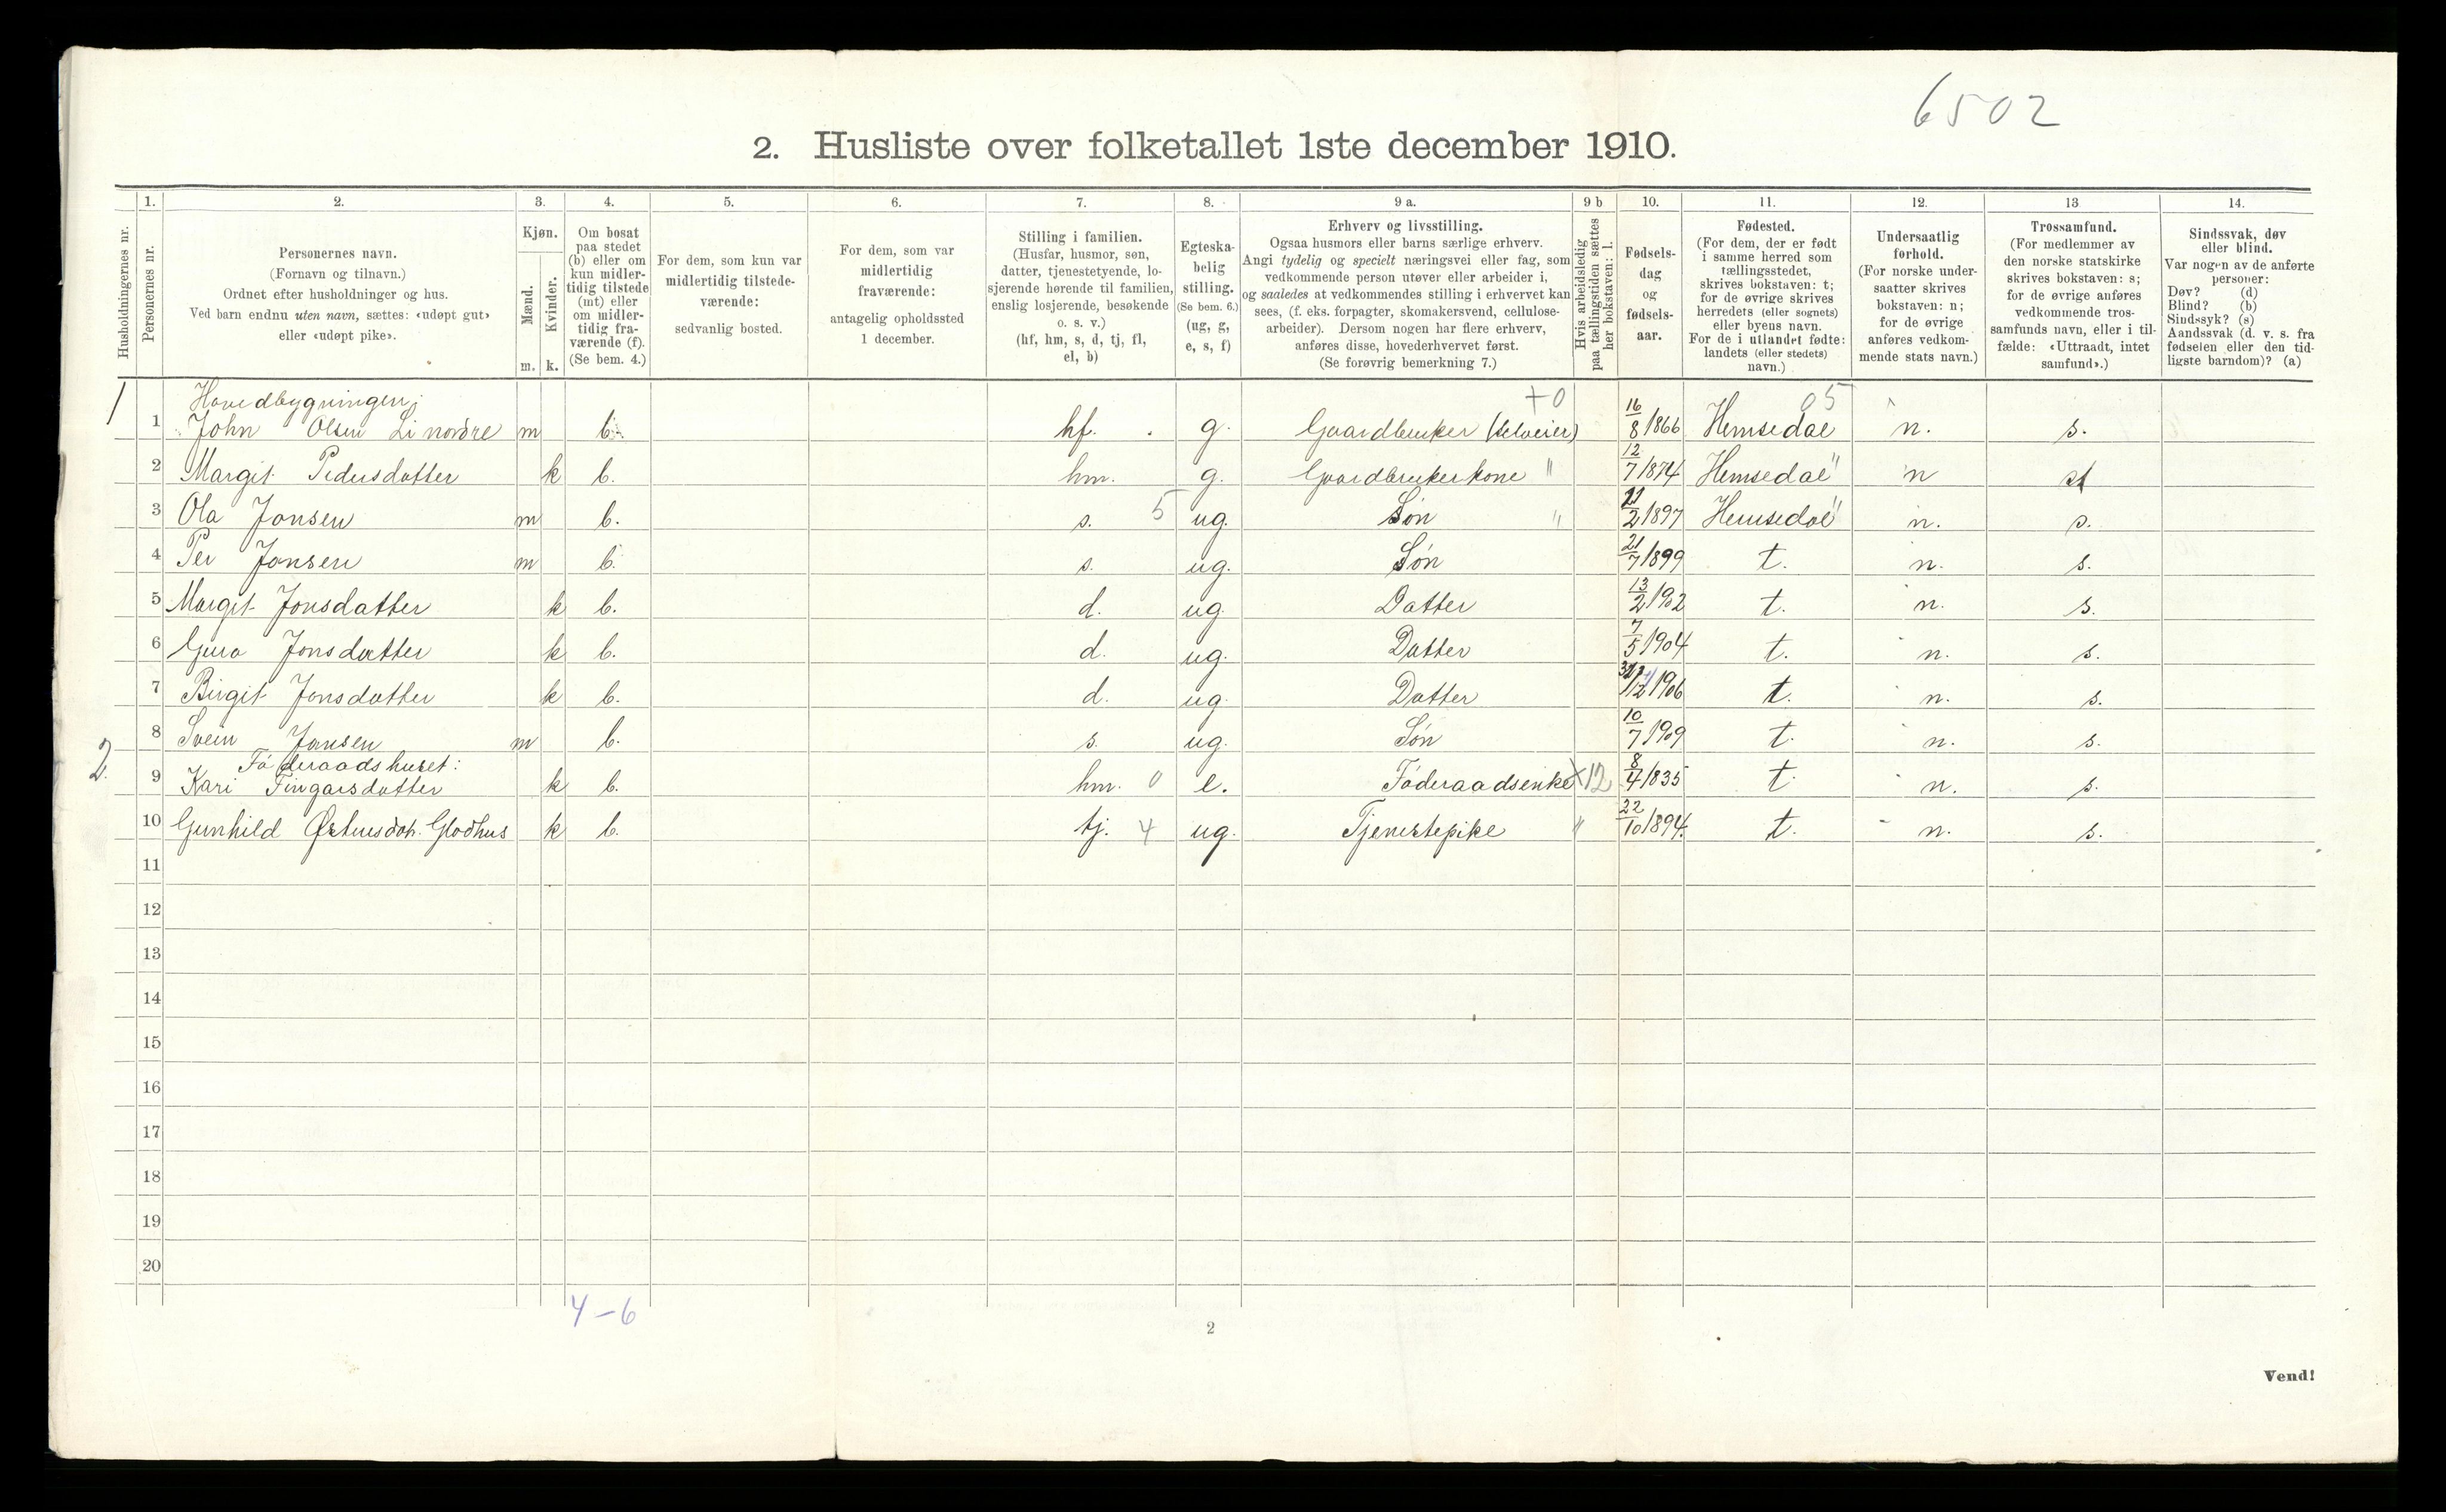 6502
2. Husliste over folketallet 1ste december 1910.
Husholdningernes nr.
1.
Personernes nr.
2.
Personernes navn.
(Fornavn og tilnavn.)
Ordnet efter husholdninger og hus.
Ved barn endnu uten navn, sættes: «udøpt gut»
eller «udøpt pike».
3.
Kjøn.
Mænd.
Kvinder.
m. k.
4.
Om bosat
paa stedet
(b) eller om
kun midler-
tidig tilstede
(mt) eller
om midler-
tidig fra-
værende (f).
(Se bem. 4.)
5.
For dem, som kun var
midlertidig tilstede-
værende:
sedvanlig bosted.
6.
For dem, som var
midlertidig
fraværende:
antagelig opholdssted
1 december.
7.
Stilling i familien.
(Husfar, husmor, søn,
datter, tjenestetyende, lo-
sjerende hørende til familien,
enslig losjerende, besøkende
o. s. v.)
(hf, hm, s, d, tj, fl,
el, b)
8.
Egteska-
belig
stilling.
(Se bem. 6.)
(ug, g,
e, s, f)
9 a.
Erhverv og livsstilling.
Ogsaa husmors eller barns særlige erhverv.
Angi tydelig og specielt næringsvei eller fag, som
vedkommende person utøver eller arbeider i,
og saaledes at vedkommendes stilling i erhvervet kan
sees, (f. eks. forpagter, skomakersvend, cellulose-
arbeider). Dersom nogen har flere erhverv,
anføres disse, hovederhvervet først.
(Se forøvrig bemerkning 7.)
9 b
Hvis arbeidsledig
paa tællingstiden sættes
her bokstaven: l.
10.
Fødsels-
dag
og
fødsels-
aar.
11.
Fødested.
(For dem, der er født
i samme herred som
tællingsstedet,
skrives bokstaven: t;
for de øvrige skrives
herredets (eller sognets)
eller byens navn.
For de i utlandet fødte:
landets (eller stedets)
navn.)
12.
Undersaatlig
forhold.
(For norske under-
saatter skrives
bokstaven: n;
for de øvrige
anføres vedkom-
mende stats navn.)
13
Trossamfund.
(For medlemmer av
den norske statskirke
skrives bokstaven: s;
for de øvrige anføres
vedkommende tros-
samfunds navn, eller i til-
fælde: «Uttraadt, intet
samfund».)
14.
Sindssvak, døv
eller blind.
Var nogen av de anførte
personer:
Døv? (d)
Blind? (b)
Sindssyk? (s)
Aandssvak (d. v. s. fra
fødselen eller den tid-
ligste barndom)? (a)
1 Hovedbygningen: +0 05
1 John Olsen Li nordre m b. hf. g. Gaardbruker (selveier) 16/8 1866 Hemsedal n. s.
2 Margit Pedersdatter k b. hm. g. Gaardbrukerkone " 12/7 1874 Hemsedal " n s
3 Ola Jonsen m b. s. 5 ug. Søn " 11/2 1897 Hemsedal " n. s.
4 Per Jonsen m b. s. ug. Søn 21/7 1899 t. n. s.
5 Margit Jonsdatter k b. d. ug. Datter 13/2 1902 t. n. s.
6 Guro Jonsdatter k b. d. ug. Datter 7/5 1904 t. n. s.
7 Birgit Jonsdatter k b. d. ug. Datter /12 1906 t. n. s.
8 Svein Jonsen m b. s. ug. Søn 10/7 1909 t. n. s.
2. Føderaadshuset:
9 Kari Fingarsdatter k b. hm. 0 e. Føderaadsenke +12 8/4 1835 t n. s.
10 Gunhild Østensdat. Glodhus k b. tj. 4 ug. Tjenestepike " 22/10 1894. t. n. s.
11
12
13
14
15
16
17
18
19
20
4-6
2
Vend!